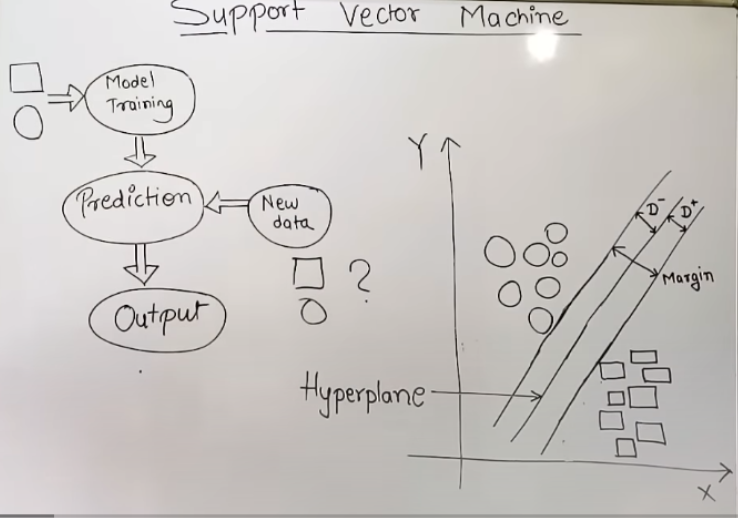 Support Vector Machine
Model
Training
Prediction
New
data
?
Output
Y
D-
D+
Margin
Hyperplane
X